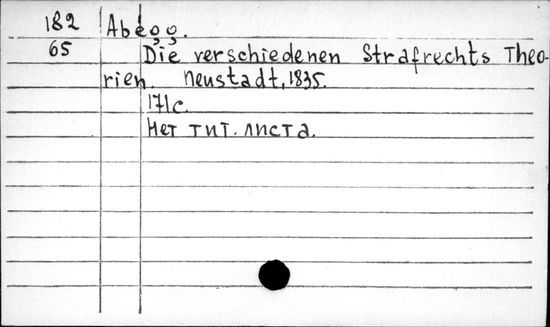 182 Abegg.
65 Die verschiedenen Strafrechts Theo-
rien. Neustadt, 1835.
171c.
Нет тит. листа.